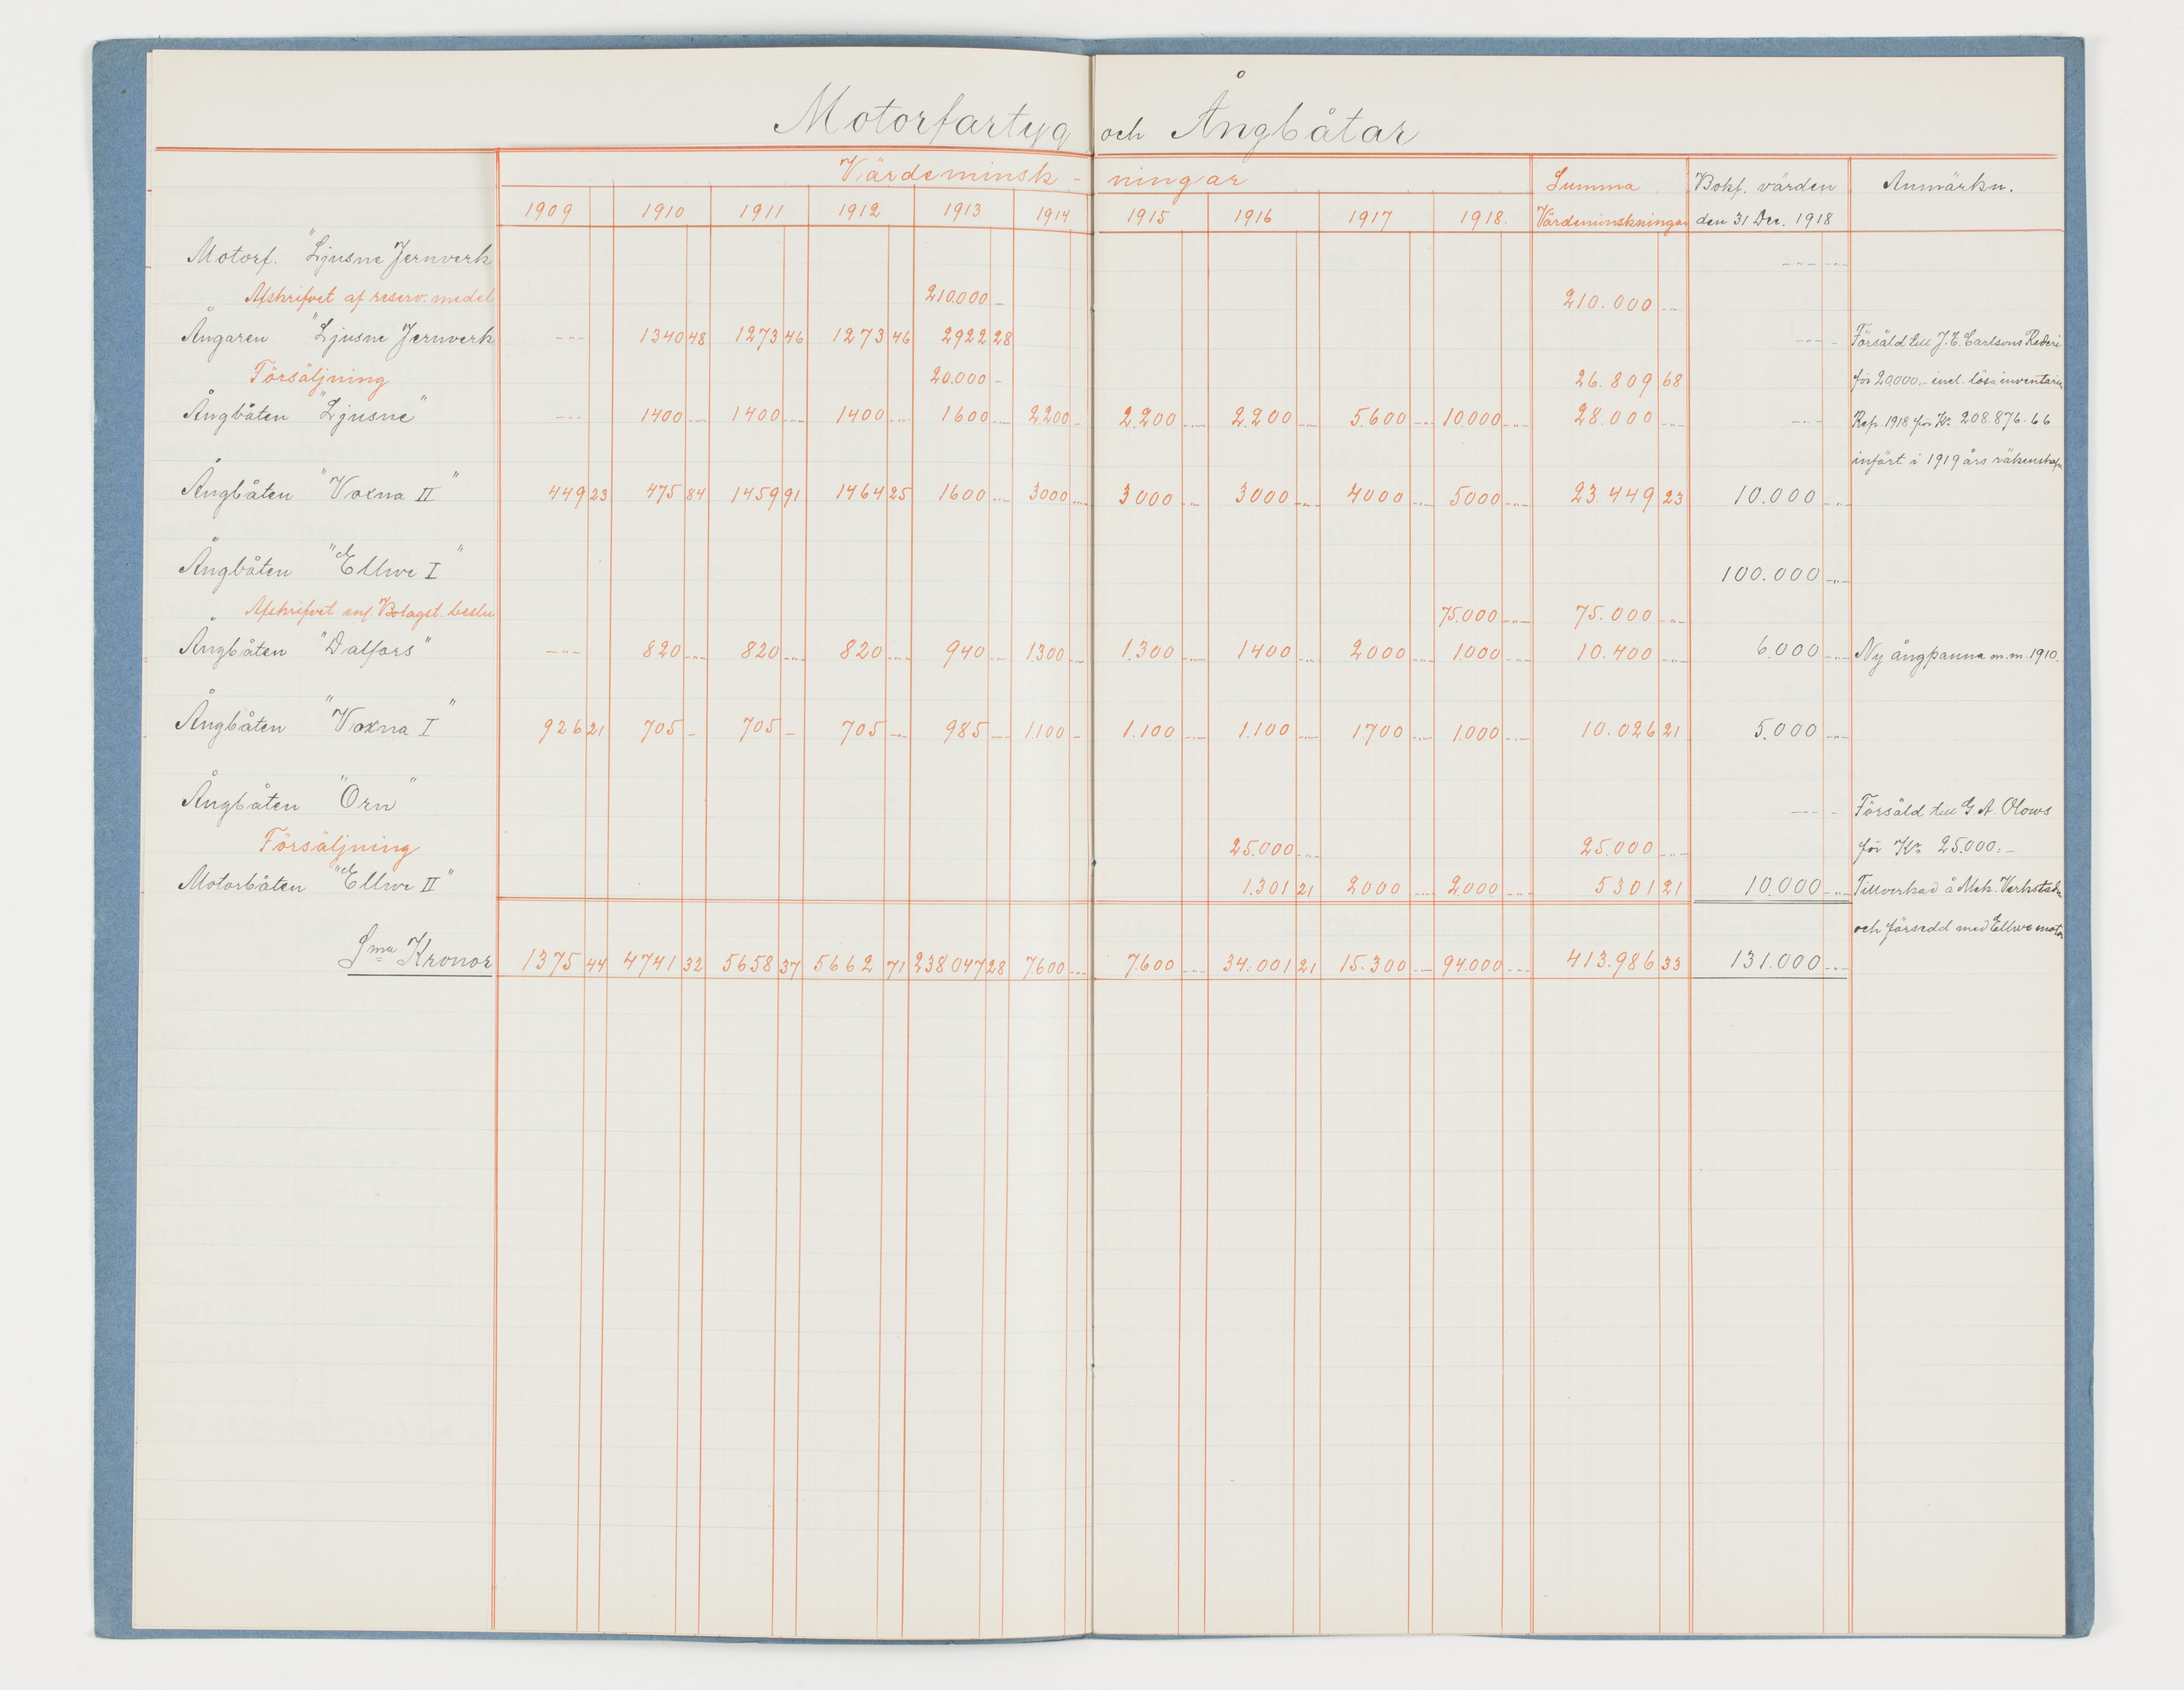 Motorfartyg och Ångbåtar
Värdeminsk- ningar Summa Bokf. värden Anmärkn.
1909 1910 1911 1912 1913 1914 1915 1916 1917 1918. Värdeminskningar den 31 Dec. 1918
Motorf. "Ljusne Jernverk -"- -"-
Afskrifvet af reserv. medel 210.000 - 210.000 -"-
Ångaren "Ljusne Jernverk -"- 1340 48 1273 46 1273 46 2922 28 -"- - Försåld till J. E. Carlsons Rederi
Försäljning 20.000 - 26.809 68 för 20.000,- incl. lösa inventarier
Ångbåten "Ljusne" -"- 1400 -"- 1400 -"- 1400 -"- 1600 -"- 2.200 - 2.200 -"- 2.200 -"- 5.600 -"- 10.000 -"- 28.000 -"- -"- Rep. 1918 för Kr 208.876.66
infört i 1919 års räkenskap
Ångbåten "Voxna II" 449 23 475 84 1459 91 1464 25 1600 -"- 3000 -"- 3000 -"- 3000 -"- 4000 -"- 5000 -"- 23.449 23 10.000 -"-
Ångbåten "Ellwe I" 100.000 -"-
Afskrifvet enl. Bolagst. beslu 75.000 -"- 75.000 -"-
Ångbåten "Dalfors" -"- 820 -"- 820 -"- 820 -"- 940 -"- 1.300 -"- 1.300 -"- 1400 -"- 2000 -"- 1.000 -"- 10.400 -"- 6.000 -"- Ny ångpanna m.m. 1910.
Ångbåten "Voxna I" 926 21 705 - 705 - 705 -"- 985 -"- 1.100 - 1.100 -"- 1.100 -"- 1.700 -"- 1.000 -"- 10.026 21 5.000 -"-
Ångbåten "Örn" -"- - Försåld till G. A. Olows
Försäljning 25.000 -"- 25.000 -"- för Kr 25.000:-
Motorbåten "Ellwe II" 1.301 21 2000 -"- 2.000 -"- 5301 21 10.000 -"- Tillverkad å Mek. Verkstaden
och försedd med Ellwe motor
Sma Kronor 1375 44 4741 32 5658 37 5662 71 238047 28 7.600 -"- 7.600 -"- 34.001 21 15.300 -"- 94.000 -"- 413.986 33 131.000 -"-